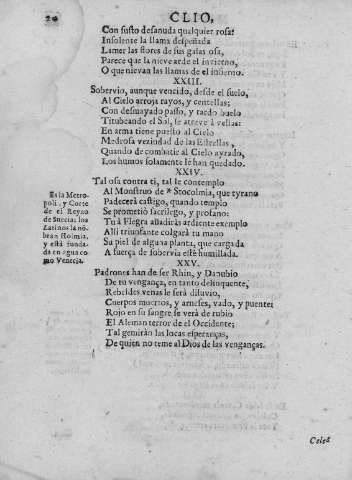 20
CLIO,
Con susto desanuda qualquier rosa:
Insolente la llama despeñada
Lamer las flores de sus galas osa,
Parece que la nieve arde el invierno,
O que nievan las llamas de el infierno.
XXIII.
Sobervio, aunque vencido, desde el suelo,
Al Cielo arroja rayos, y centellas;
Con desmayado passo, y tardo buelo
Titubeando el Sol, se atreve à vellas:
En arma tiene puesto al Cielo
Medrosa vezindad de las Estrellas,
Quando de combatir al Cielo ayrado,
Los humos solamente le han quedado.
XXIV.
Tal osa contra ti, tal le contemplo
Al Monstruo de a Stocolmia, que tyrano
Padecerà castigo, quando templo
Se prometiò sacrilego, y profano:
Tu à Flegra añadiràs ardiente exemplo
Alli triunfante colgarà tu mano
Su piel de alguna planta, que cargada
A fuerça de sobervia estè humillada.
Es la Metro-
poli, y Corte
de el Reyno
de Suecia; los
Latinos la nõ-
bran stolmia,
y està funda-
da en agua co-
mo Venecia.
XXV.
Padrones han de ser Rhin, y Danubio
De tu vengança, en tanto delinquente,
Rebeldes venas le serà diluvio,
Cuerpos muertos, y arneses, vado, y puente:
Rojo en su sangre se verà de rubio
El Aleman terror de el Occidente;
Tal gemiràn las locas esperanças,
De quien no teme al Dios de las venganças.
Celes